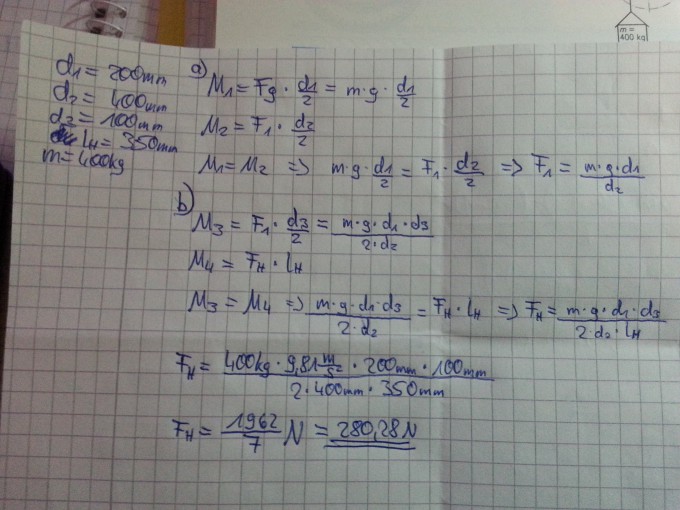 m =
400 kg
d1 = 200mm
d2 = 400mm
d3 = 100mm
lH = 350mm
m = 400kg
a)
M1 = Fg · d1/2 = m·g · d1/2
M2 = F1 · d2/2
M1 = M2 => m·g · d1/2 = F1 · d2/2 => F1 = m·g·d1/d2
b)
M3 = F1 · d3/2 = m·g·d1·d3/2·d2
M4 = FH · lH
M3 = M4 => m·g·d1·d3/2·d2 = FH · lH => FH = m·g·d1·d3/2·d2·lH
FH = 400kg · 9,81 m/s² · 200mm · 100mm/2·400mm·350mm
FH = 1962/7 N = 280,28N